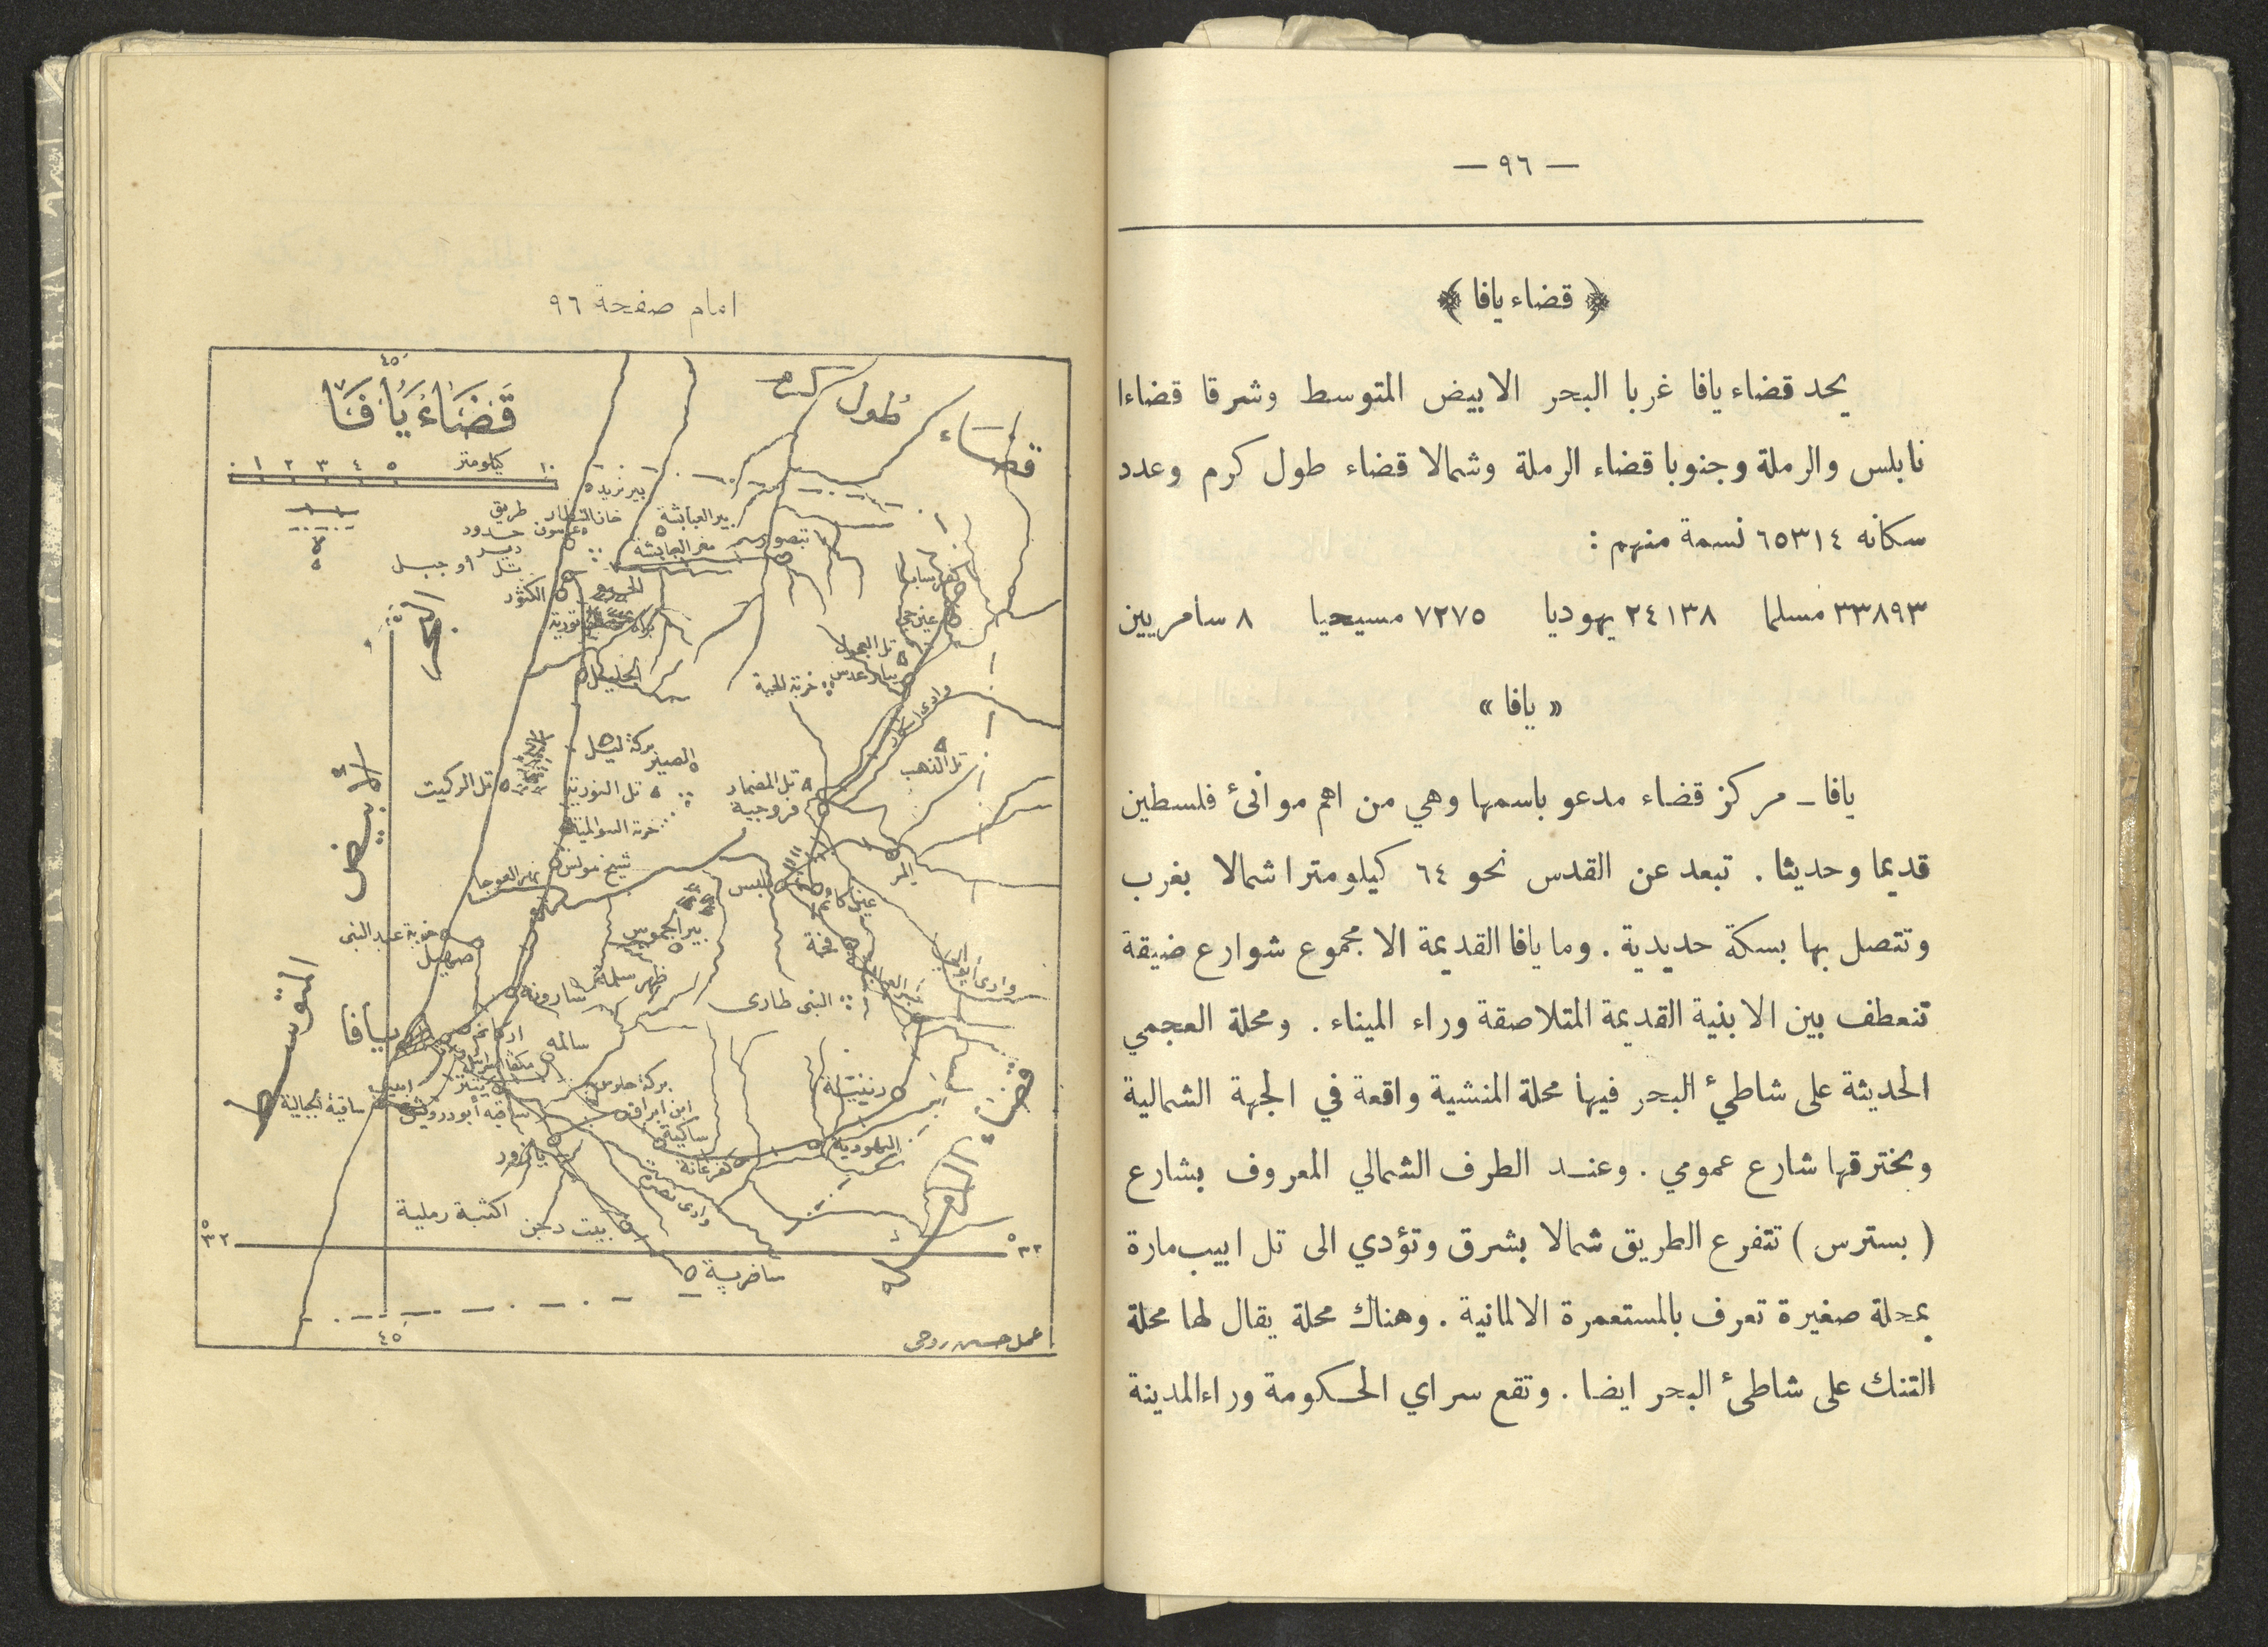 — ٩٦ —
﴿ قضاء يافا ﴾
يحد قضاء يافا غربا البحر الابيض المتوسط وشرقا قضاءا
نابلس والرملة وجنوبا قضاء الرملة وشمالا قضاء طول كرم وعدد
سكانه ٦٥٣١٤ نسمة منهم :
٣٣٨٩٣ مسلما ٢٤١٣٨ يهوديا ٧٢٧٥ مسيحيا ٨ سامريين
« يافا »
يافا – مركز قضاء مدعو باسمها وهي من اهم موانئ فلسطين
قديما وحديثا . تبعد عن القدس نحو ٦٤ كيلومترا شمالا بغرب
وتتصل بها بسكة حديدية . وما يافا القديمة الا مجموع شوارع ضيقة
تنعطف بين الابنية القديمة المتلاصقة وراء الميناء . ومحلة العجمي
الحديثة على شاطئ البحر فيها محلة المنشية واقعة في الجهة الشمالية
ويخترقها شارع عمومي . وعنـد الطرف الشمالي المعروف بشارع
( بسترس ) تتفرع الطريق شمالا بشرق وتؤدي الى تل ابيب مارة
بمحلة صغيرة تعرف بالمستعمرة الالمانية . وهناك محلة يقال لها محلة
التنك على شاطئ البحر ايضا . وتقع سراي الحكومة وراء المدينة
امام صفحة ٩٦
٤٥
قَضَاءُ يَافَا
قضاء طول كرم
٠ ١ ٢ ٣ ٤ ٥ كيلومتر ١٠
طريق
حدود
دير
تل أو جبل
البحر الأبيض المتوسط
بير العبابشة
تبصور
كفر سابا
الحرم
الجليل
تل العجول
بيار عدس
خربة الحية
بركة ليل
تل الركيت
تل النورية
تل المضمار
فروجية
تل الذهب
خربة السوالمية
شيخ مونس
نهر العوجا
ملبس
المر
بير الجموس
فجة
خربة عبد النبى
صميل
ظهر سلمة
سارونه
النبى طارى
يافا
سالمه
رنتيّة
ابن ابراق
ساكية
اليهودية
كفرعانة
يازور
وادى نصره
اكثبة رملية
بيت دجن
٣٢ ٣٢
سافرية
قضاء الرملة
٤٥
عمل حسين روحى